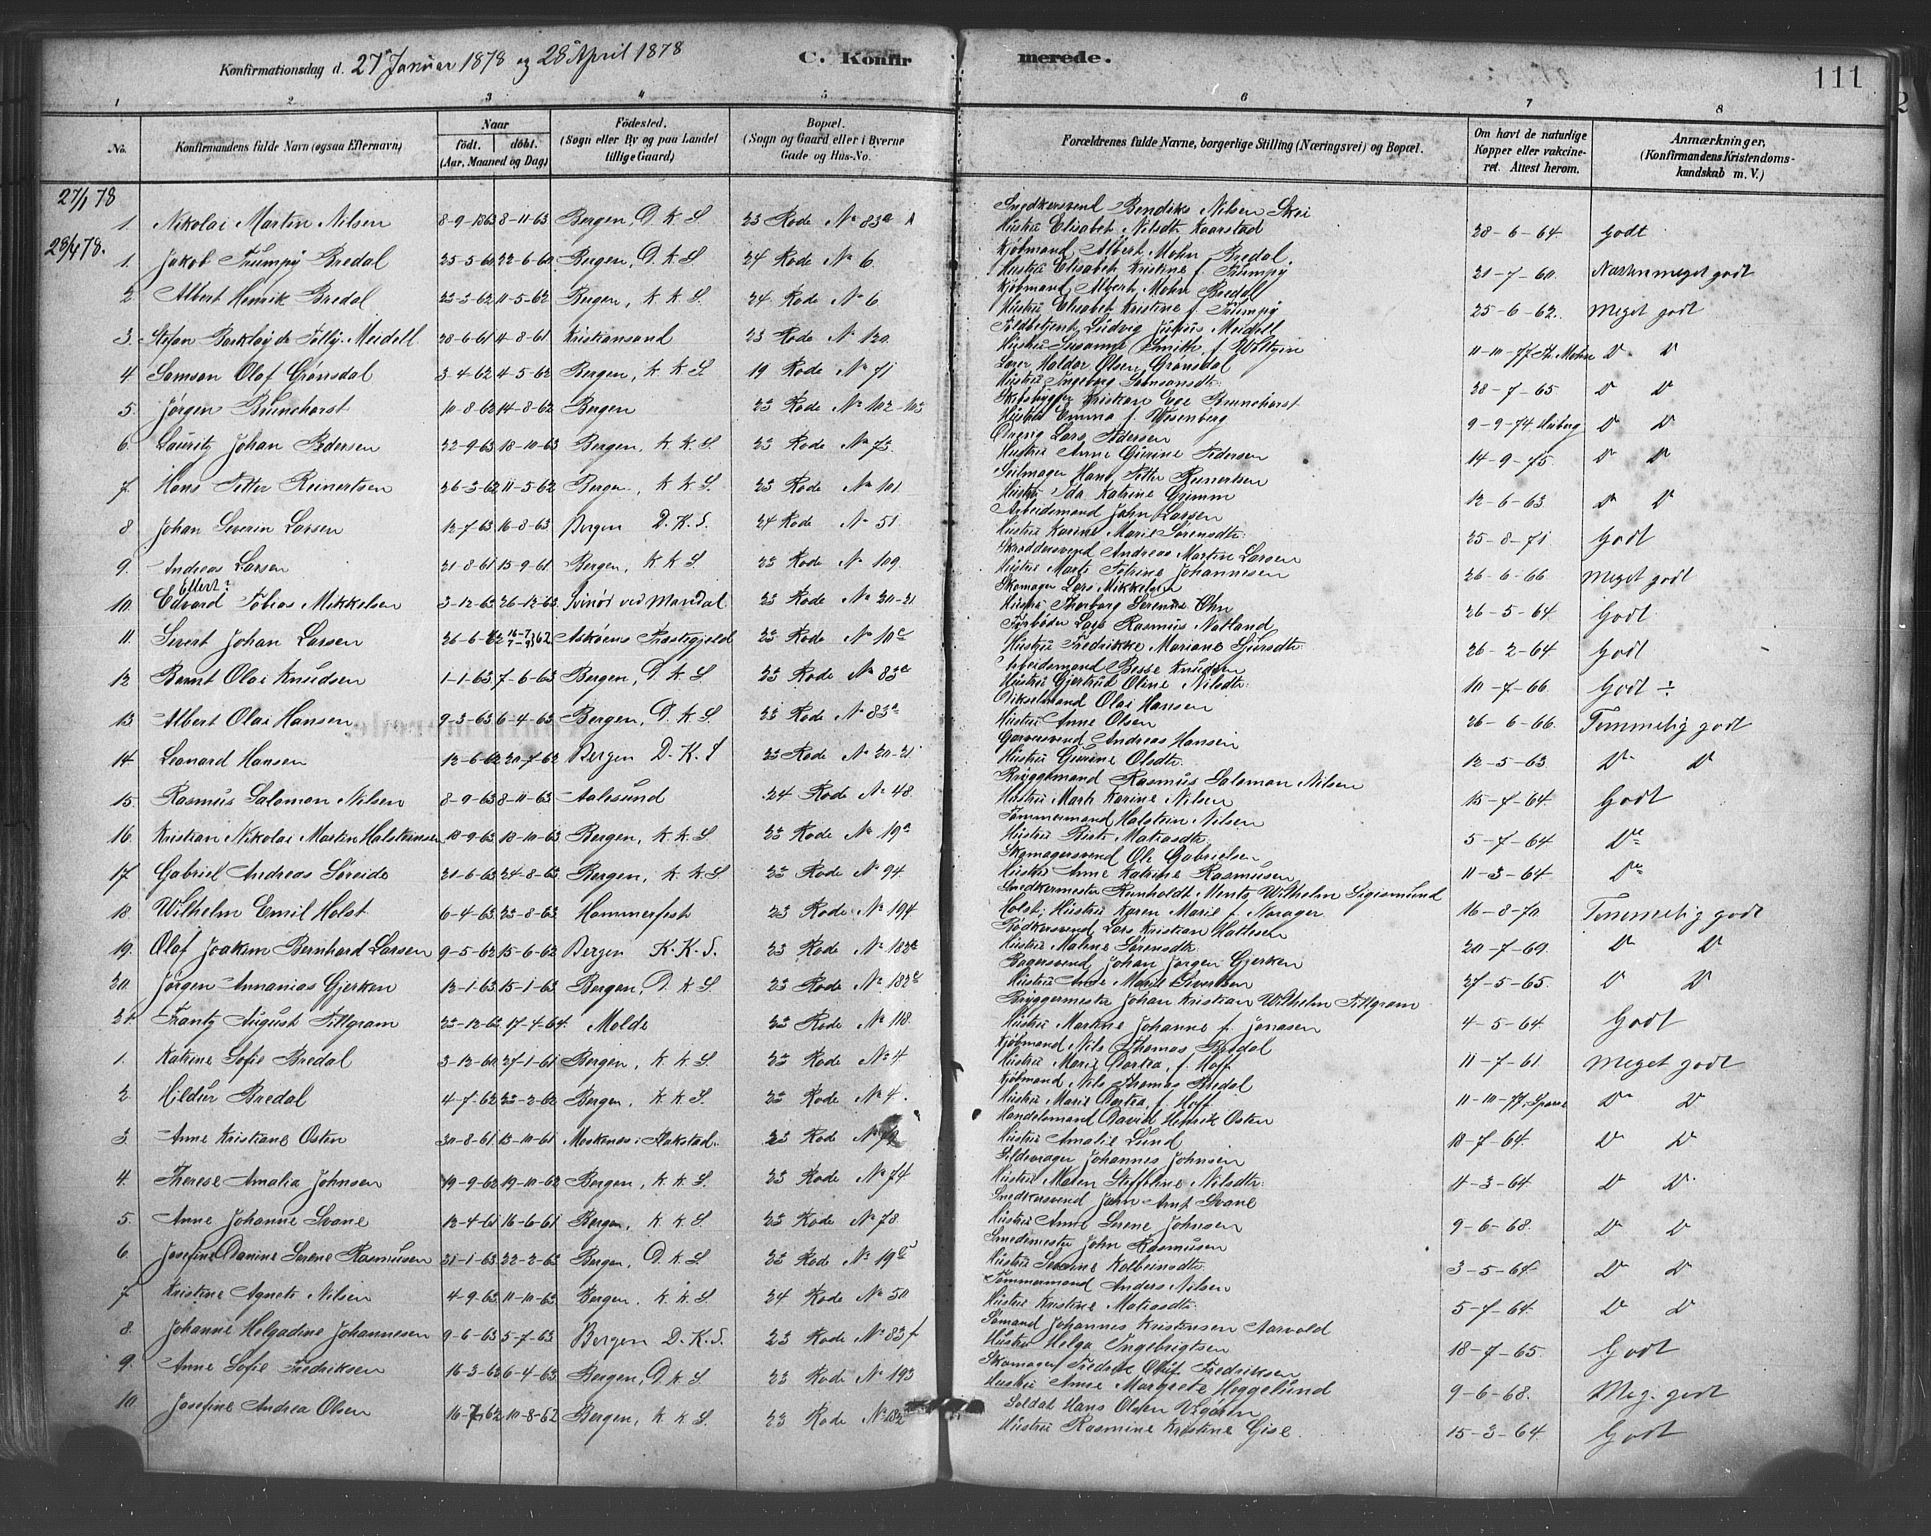 Konfirmationsdag d. 27 Januar 1878 og 28 April 1878
C. Konfirmerede.
111
1 2 3 4 5 6 7 8
No. Konfirmandens fulde Navn (ogsaa Efternavn) Naar født. døbt. (Aar, Maaned og Dag) Fødested. (Sogn eller By og paa Landet tillige Gaard) Bopæl. (Sogn og Gaard eller i Byerne Gade og Hus-No. Forældrenes fulde Navne, borgerlige Stilling (Næringsvei) og Bopæl. Om havt de naturlige Kopper eller vakcineret. Attest herom. Anmærkninger, (Konfirmandens Kristendomskundskab m. V.)
27/1 78
1. Nikolai Martin Nilsen 8-9-1863 8-11-63 Bergen, D. K. S 23 Rode No 83a Snedkersvend Bendiks Nilsen Skei Hustru Elisabet Nilsdtr Kaarstad 28-6-64. Godt
28/4 78.
1. Jakob Trumpy Bredal 25-5-60 22-6-60 Bergen, D. K. S 24 Rode No 6. Kjøbmand Albert Mohn Bredal. Hustru Elisabet Kristine f. Trumpy 21-7-60. Næsten meget godt
2 Albert Henrik Bredal 22-3-62 11-5-62 Bergen, K. K. S. 24 Rode No 6 Kjøbmand Albert Mohn Bredal Hustru Elisabet Kristine f. Trumpy 25-6-62. Meget godt
3. Stefan Barklay de Tolly Meidell 28-6-61 4-8-61 Kristiansand 23 Rode No 120. Toldbetjent Ludvig Julius Meidell Hustru Susanne Smith f. Woltzin 11-10-77 Th. Mohn D D
4 Samson Olaf Grønsdal 3-4-62 4-5-62 Bergen, K. K. S. 19 Rode No 71 Lærer Haldor Olsen Grønsdal Hustru Ingeborg Samsonsdtr 28-7-65 D D
5. Jørgen Brunchorst 10-8-62 14-8-62 Bergen 23 Rode No 102-103 Skibsbygger Kristian Brunchorst Hustru Emma f. Wesenberg 9-9-74 D D
6. Lauritz Johan Pedersen 22-9-63 18-10-63 Bergen, K. K. S 23 Rode No 73. Lars Pedersen Hustru Anne Gurine Pedersen 14-9-75 D D
7. Hans Fetter Reinertsen 26-3-62 11-5-62 Bergen, K. K. S. 23 Rode No 101 Seilmager Hans Fetter Reinertsen Hustru Ida Katrine Grimm 12-6-63 D D
8 Johan Severin Larsen 12-7-63 16-8-63 Bergen D. K. S. 24 Rode No 51. Arbeidsmand John Larsen Hustru Karine Marie Sørensdtr 25-8-71 Godt
9. Andreas Larsen 21-8-61 15-9-61 Bergen, K. K. S 23 Rode No 109. Skræddersvend Andreas Martin Larsen Hustru Marte Petrine Johannesen 26-6-66 Meget godt
10. Edvard Ellert? Tobias Mikkelsen 3-12-63 26-12-63 Svinør ved Mandal 23 Rode No 20-21 Skomager Lars Mikkelsen Hustru Thorborg Serenea Ohn 26-5-64 Godt
11. Sivert Johan Larsen 26-6-62 Askøens Præstegjeld 23 Rode No 10c Lars Rasmus Natland Hustru Fredrikke Mariane Sjursdtr 26-2-64 Godt
12 Bernt Olai Knudsen 1-1-63 7-6-63 Bergen, D. K. S 23 Rode No 83a Arbeidsmand Besse Knudsen Hustru Gjertrud Oline Nilsdtr 10-7-66. Godt ÷
13 Albert Olai Hansen 9-3-63 6-4-63 Bergen, D. K. S 23 Rode No 83a Olai Hansen Hustru Anne Olsen 26-6-66. Temmelig godt
14 Leonard Hansen 12-6-62 20-7-62 Bergen D. K. S 23 Rode No 20-21 Garversvend Andreas Hansen Hustru Gurine Olsdtr 12-5-63. D D
15. Rasmus Salomon Nilsen 8-9-63 8-11-63 Aalesund 24 Rode No 48 Bryggemand Rasmus Salomon Nilsen Hustru Marte Karine Nilsen 15-7-64. Godt
16. Kristian Nikolai Martin Holstensen 18-9-63 18-10-63 Bergen, K. K. S. 23 Rode No 19a Tømmermand Holstein Nilsen Hustru Berte Matiasdtr 5-7-64 Do
17. Gabriel Andreas Søreide 21-6-63 24-8-63 Bergen, K. K. S 23 Rode No 94 Skomagersvend Ole Gabrielsen Hustru Anne Katrine Rasmusen 11-3-64 Do
18. Wilhelm Emil Holst 6-4-63 23-8-63 Hammerfest 23 Rode No 194 Snedkermester Runholdt Mentz Wilhelm Sigismund Holst, Hustru Karen Marie f. Norager 16-8-70. Temmelig godt
19. Olaf Joakim Bernhard Larsen 9-5-62 15-6-62 Bergen K. K. S. 23 Rode No 182a Bødkersvend Lars Kristian Mathsen Hustru Maline Sørensdtr 20-7-69. D D
20. Jørgen Annanias Gjerken 12-1-63 15-1-63 Bergen, D K S 23 Rode No 182c Bagersvend Johan Jørgen Gjerken Hustru Anne Marie Sivertsen 27-5-65. D D
21 Frantz August Tillgram 22-12-62 17-4-64. Molde 23 Rode No 118. Bryggermester Johan Kristian Wilhelm Tillgram Hustru Martine Johanne f. Jonasen 4-5-64 Godt
1. Katrine Sofie Bredal 3-12-60 27-1-61 Bergen, K. K. S. 23 Rode No 4 Kjøbmand Nils Thomas Bredal Hustru Marie Dortea, f. Hoff 11-7-61 Meget godt
2 Hildur Bredal 4-7-62 Bergen, K. K. S. 23 Rode No 4. Kjøbmand Nils Thomas Bredal Hustru Marie Dortea, f. Hoff 11-10-77. D D
3. Anne Kristiane Osten 30-8-61 13-10-61 Moskenes i Flakstad. 23 Rode No 79 Handelsmand David Henrik Osten Hustru Amalie Lund 18-7-64. D D
4. Therese Amalia Johnsen 19-9-62 19-10-62 Bergen, K. K. S. 23 Rode No 74 Sildevrager Johannes Johnsen Hustru Maren Steffeline Nilsdtr 4-3-64 D D
5. Anne Johanne Svane 12-4-61 16-6-61 Bergen, K. K. S 23 Rode No 78. Snedkersvend John Arnt Svane Hustru Anne Serene Johnsen 9-6-68. D D
6. Josefine Danine Serene Rasmusen 21-1-63 22-2-63 Bergen, D. K. S 23 Rode No 19c Smedmester John Rasmusen Hustru Severine Kolbeinsdtr 3-5-64 D D
7. Kristine Agnete Nilsen 4-9-63 11-10-63 Bergen, K. K. S. 24 Rode No 50 Tømmermand Anders Nilsen Hustru Kristine Matiasdtr 5-7-64. D D
8. Johanne Helgadine Johannesen 9-6-63 5-7-63 Bergen D. K. S. 23 Rode No 83f Sømand Johannes Kristensen Aarvold Hustru Helga Ingebrigtsen 18-7-65 Godt
9. Anne Sofie Fredriksen 16-3-62 6-4-63 Bergen, D. K. S. 23 Rode No 193 Skomager Fredrik Oluf Fredriksen Hustru Anne Margrete Heggelund 9-6-68. Meg. godt
10. Josefine Andrea Olsen 16-7-62 10-8-62 Bergen, K. K. S 23 Rode No 182 Soldat Hans Olsen Hustru Rasmine Kristine Gise. 15-3-64. Godt